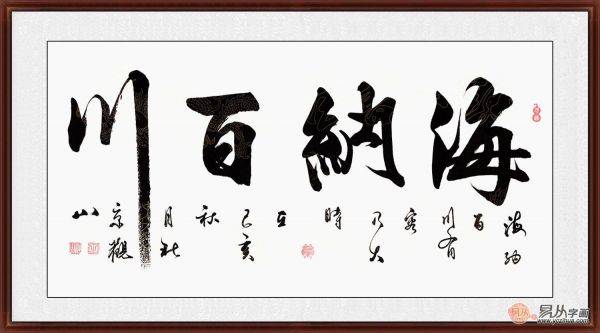 海納百川
海納
百
川有
容
乃大
時
在
己亥
秋
月於
京觀
山
易从字画
www.yczihua.com